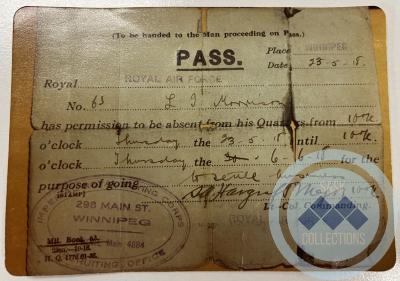 (To be handed to the Man proceeding on Pass.)
PASS.
Place WINNIPEG
Date 23-5-18.
Royal ROYAL AIR FORCE
No. 63 L J Morrison
has permission to be absent from his Quarters, from 10 A.
o'clock Thursday the 23-5-18 until 10 A.
o'clock Thursday the 6-6-18 for the
purpose of going to settle business
Major
Lt.-Col. Commanding.
ROYAL
CORPS
298 MAIN ST.
WINNIPEG
Main 4884
RECRUITING OFFICE
Mil. Book. 63.
H. Q. 1776.
COLLECTIONS